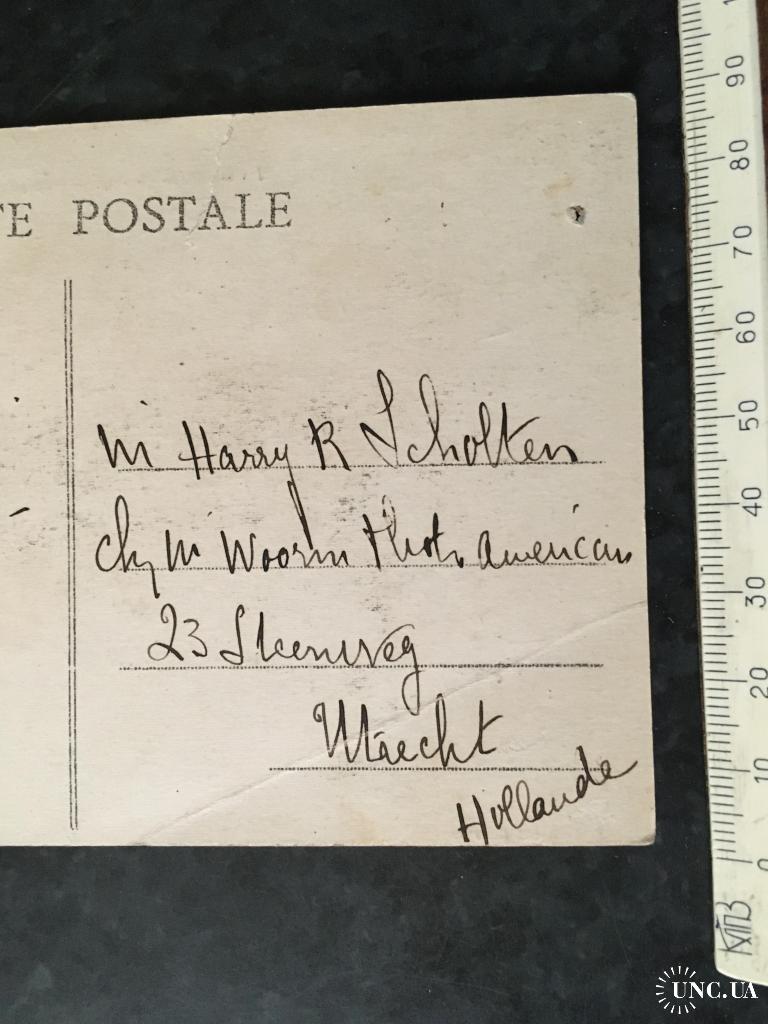 TE POSTALE
M Harry R Scholten
chz M Woorm Phot. American
23 Steenweg
Utrecht
Hollande
0 10 20 30 40 50 60 70 80 90
UNC.UA